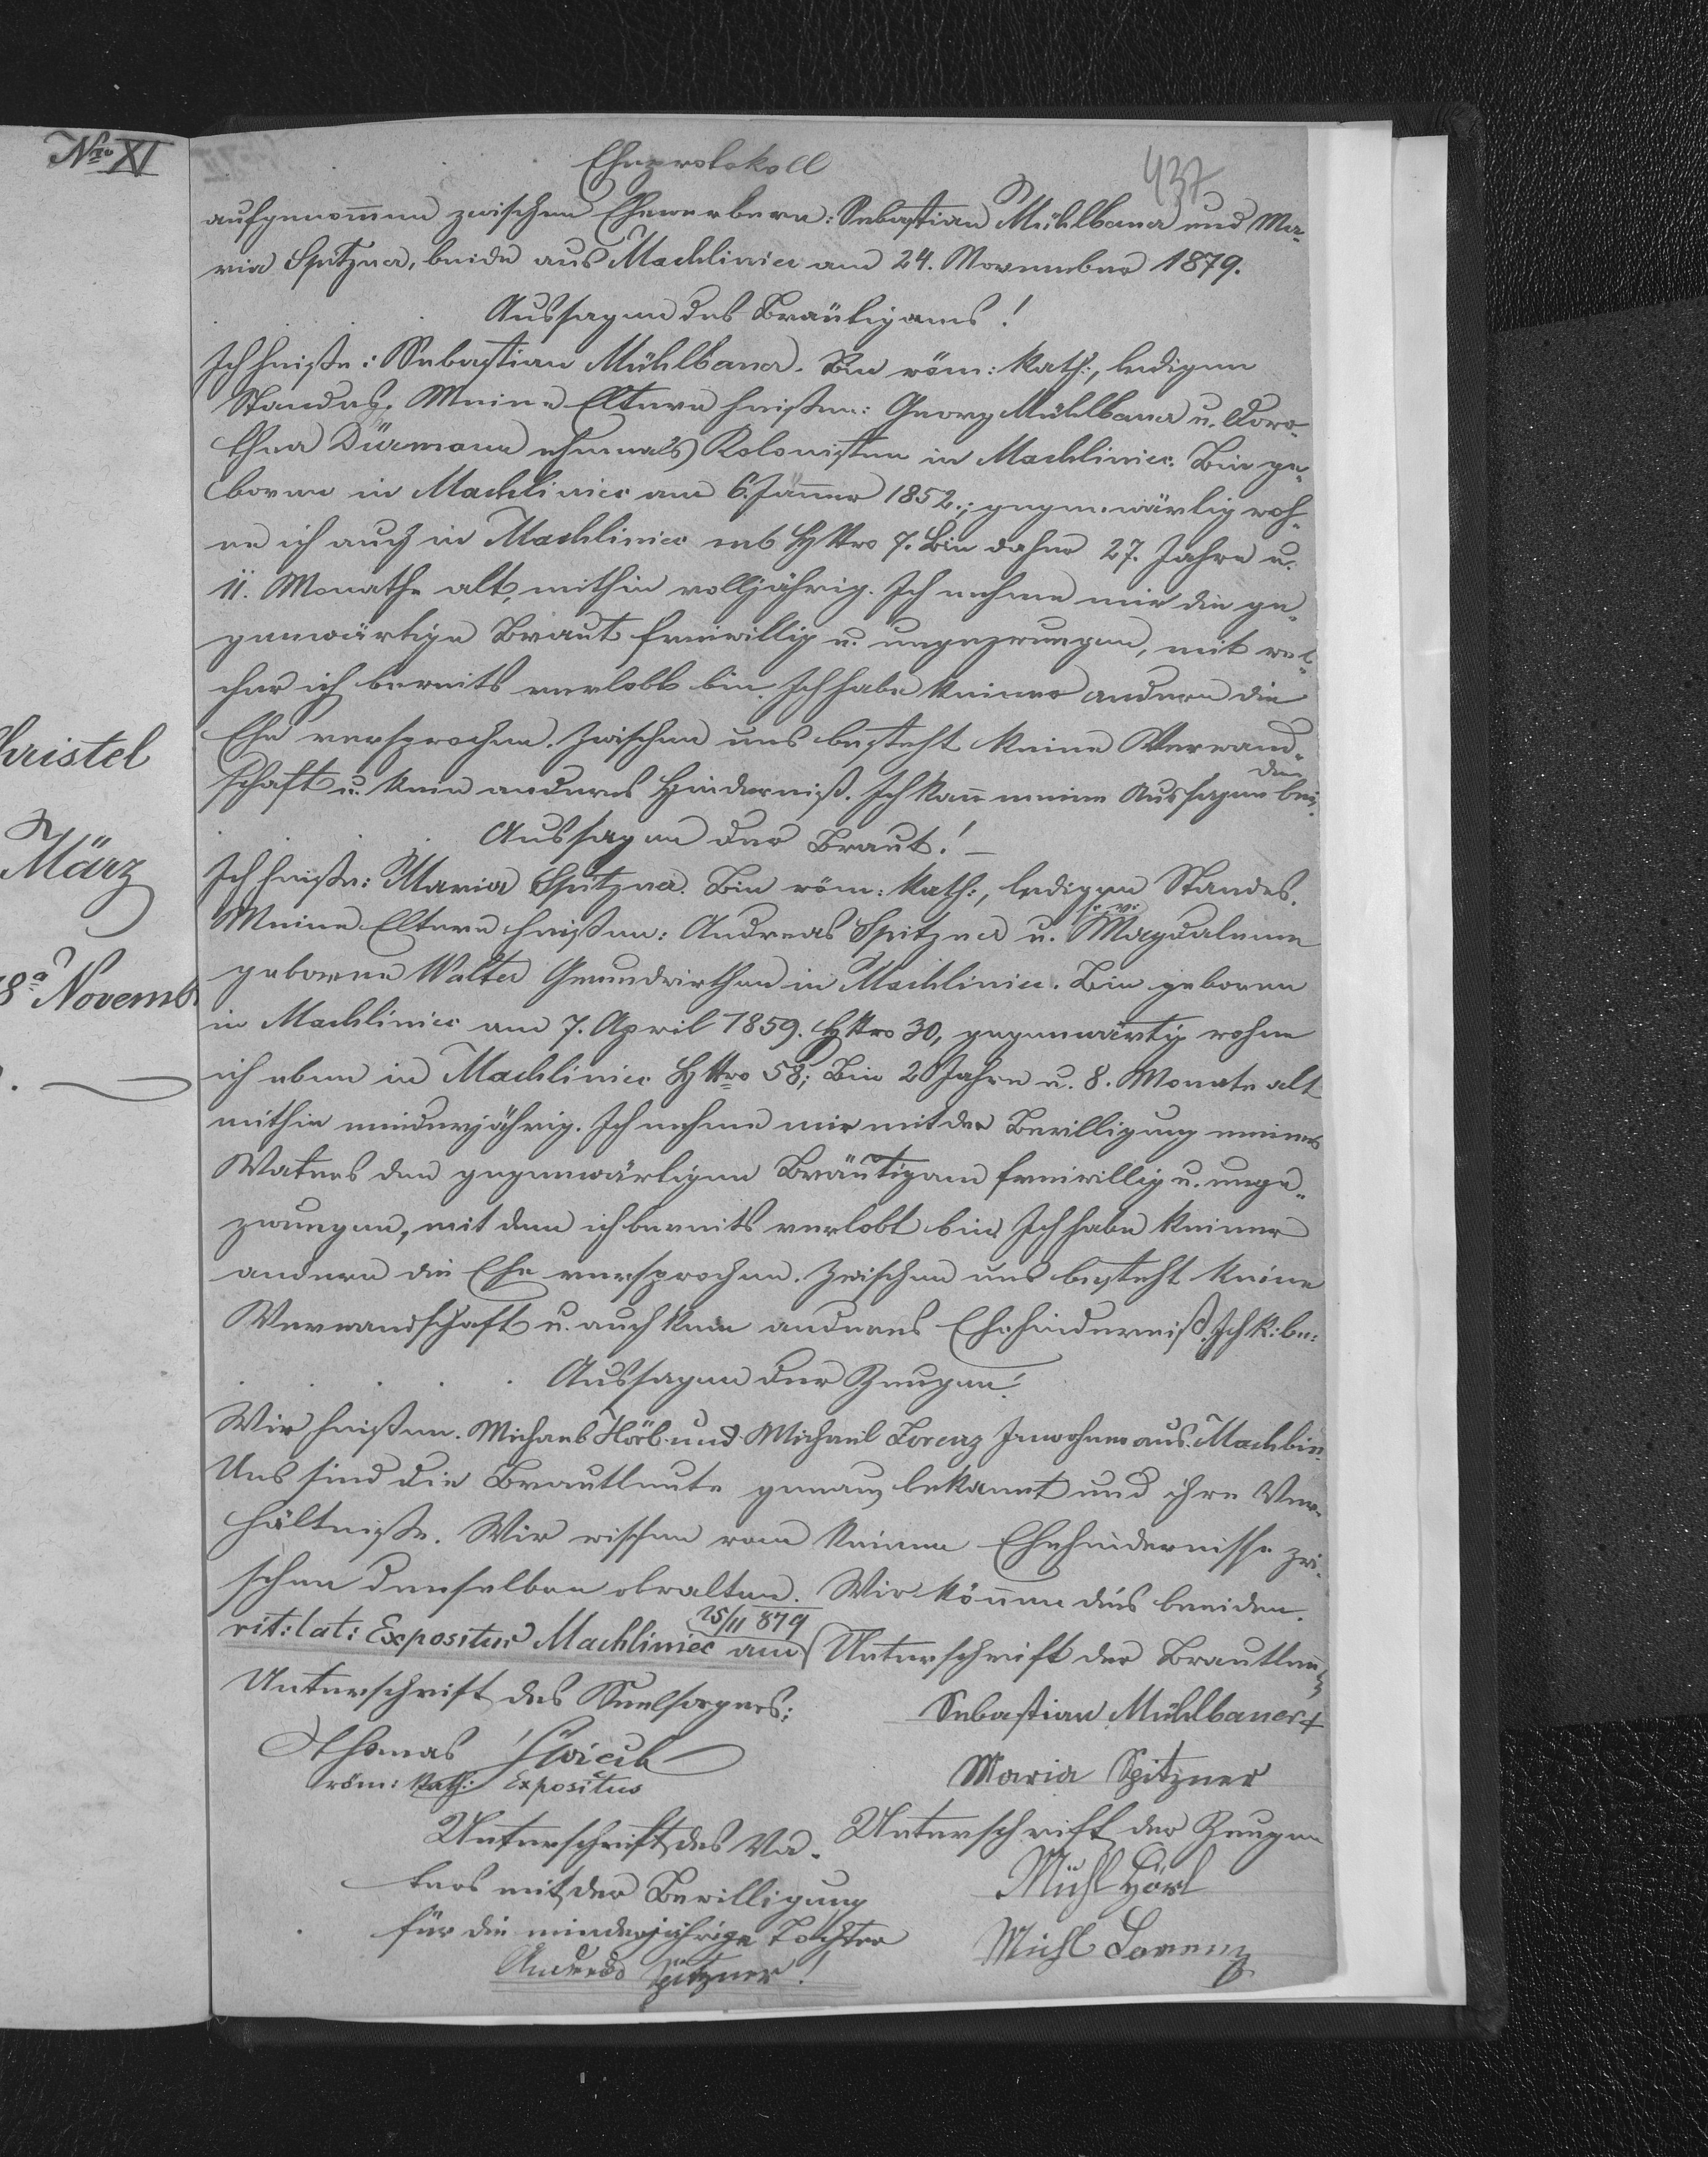 Nro XI
hristel
März
8a Novemb
Eheprotokoll
437
aufgenommen zwischen Ehewerbern: Sebastian Mühlbauer und Ma-
ria Spitzner, beide aus Machliniec am 24. November 1879.
Aussagen des Bräutigams!
Ich heiße: Sebastian Mühlbauer. Bin röm: kath:, ledigen
Standes. Meine Eltern heißen: Georg Mühlbauer u. Doro-
thea Dürmann ehemals Kolonisten in Machliniec. Bin ge-
boren in Machliniec am 6. Jänner 1852.; gegenwärtig woh-
ne ich auch in Machliniec sub HNro 7. Bin daher 27. Jahre u.
11. Monathe alt, mithin volljährig. Ich nehme mir die ge-
genwärtige Braut freiwillig u. ungezwungen, mit wel-
cher ich bereits verlobt bin. Ich habe keiner andern die
Ehe versprochen. Zwischen uns besteht keine Verwand-
schaft u. kein anderes Hinderniß. Ich kann meine Aussagen bei-
den
Aussagen der Braut! –
Ich heiße: Maria Spitzner. Bin röm: kath:, ledigen Standes.
Meine Eltern heißen: Andreas Spitzner u. Magdalena
geborene Walter Grundwirthen in Machliniec. Bin geboren
in Machliniec am 7. April 1859. HNro 30, gegenwärtig wohne
ich eben in Machliniec HNro 58; Bin 20 Jahre u. 8. Monate alt
mithin minderjährig. Ich nehme mir mit der Bewilligung meines
Vaters den gegenwärtigen Bräutigam freiwillig u. unge-
zwungen, mit dem ich bereits verlobt bin. Ich habe keinem
andern die Ehe versprochen. Zwischen uns besteht keine
Verwandschaft u. auch kein anderes Ehehinderniß. Ich k: be:
Aussagen der Zeugen!
Wir heißen. Michael Hörl und Michael Lorenz Inwohner aus Machlin.
Uns sind die Brautleute genau bekannt und ihre Ver-
hältniße. Wir wissen von keinem Ehehindernisse zwi-
schen denselben obwalten. Wir können dies beeiden.
rit: lat: Expositur Machliniec am 25/11 879
Unterschrift der Brautleute
Unterschrift des Seelsorgers:
Sebastian Mühlbauer +
Thomas
röm: kath: Expositus
Maria Spitzner
Unterschrift des Va-
ters mit der Bewilligung
für die minderjährige Tochter
Andreas Spitzner!
Unterschrift der Zeugen
Michl Hörl
Michl Lorenz